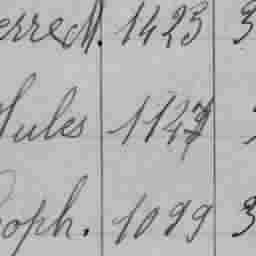 erre M. 1423 3
Jules
oph. 1099 3